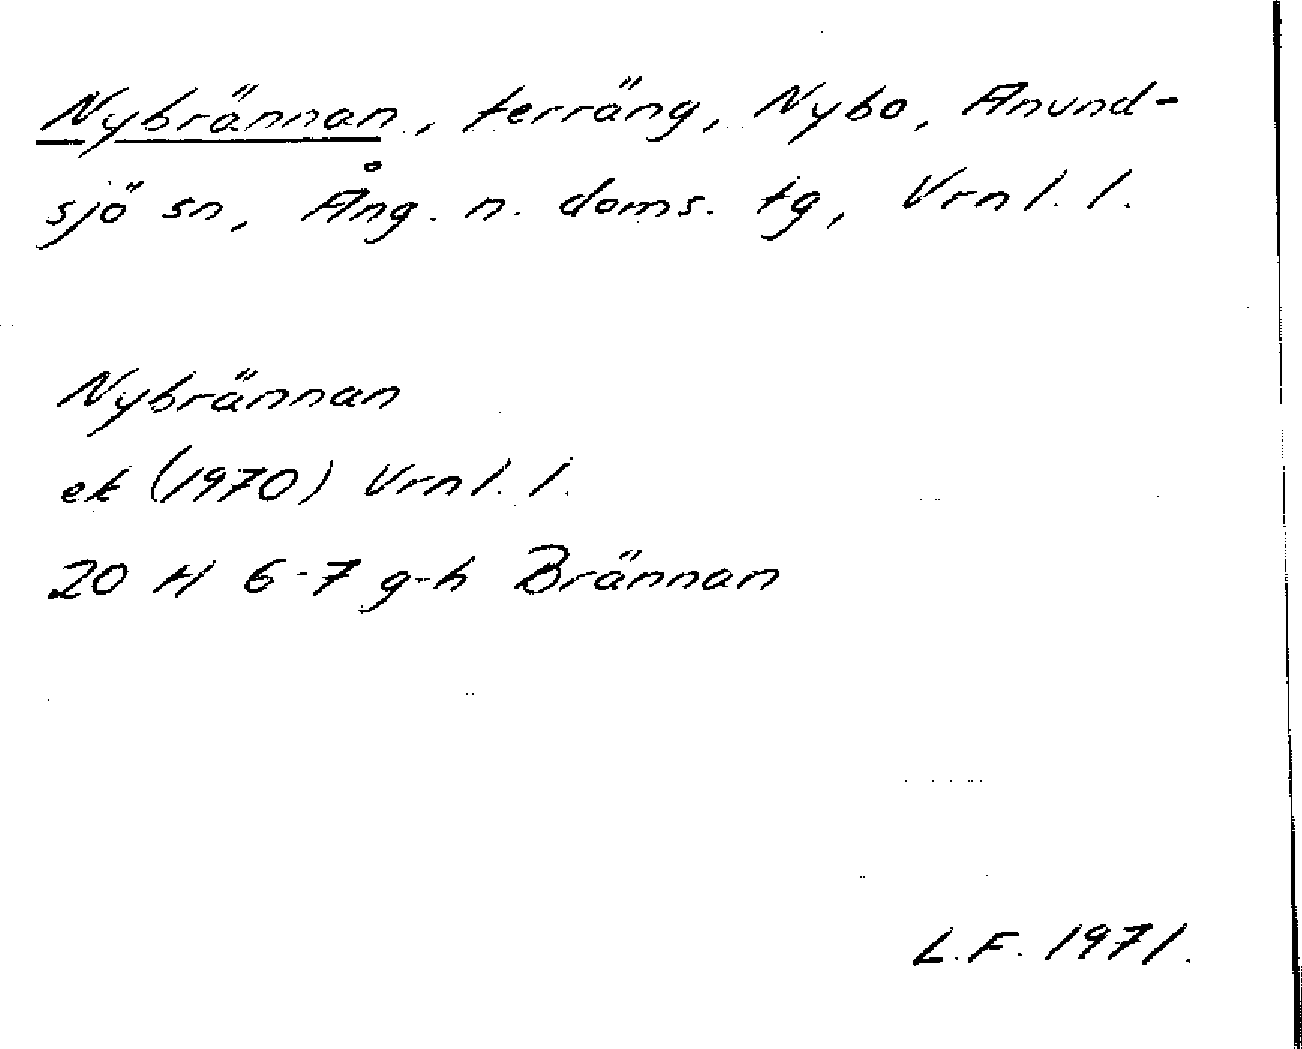 Nybrännan, terräng, Nybo, Anund-
sjö sn, Ång. n. doms. tg, Vrnl. l.
Nybrännan
ek (1970) Vrnl. l.
20 H 6-7 g-h Brännan
L.F. 1971.